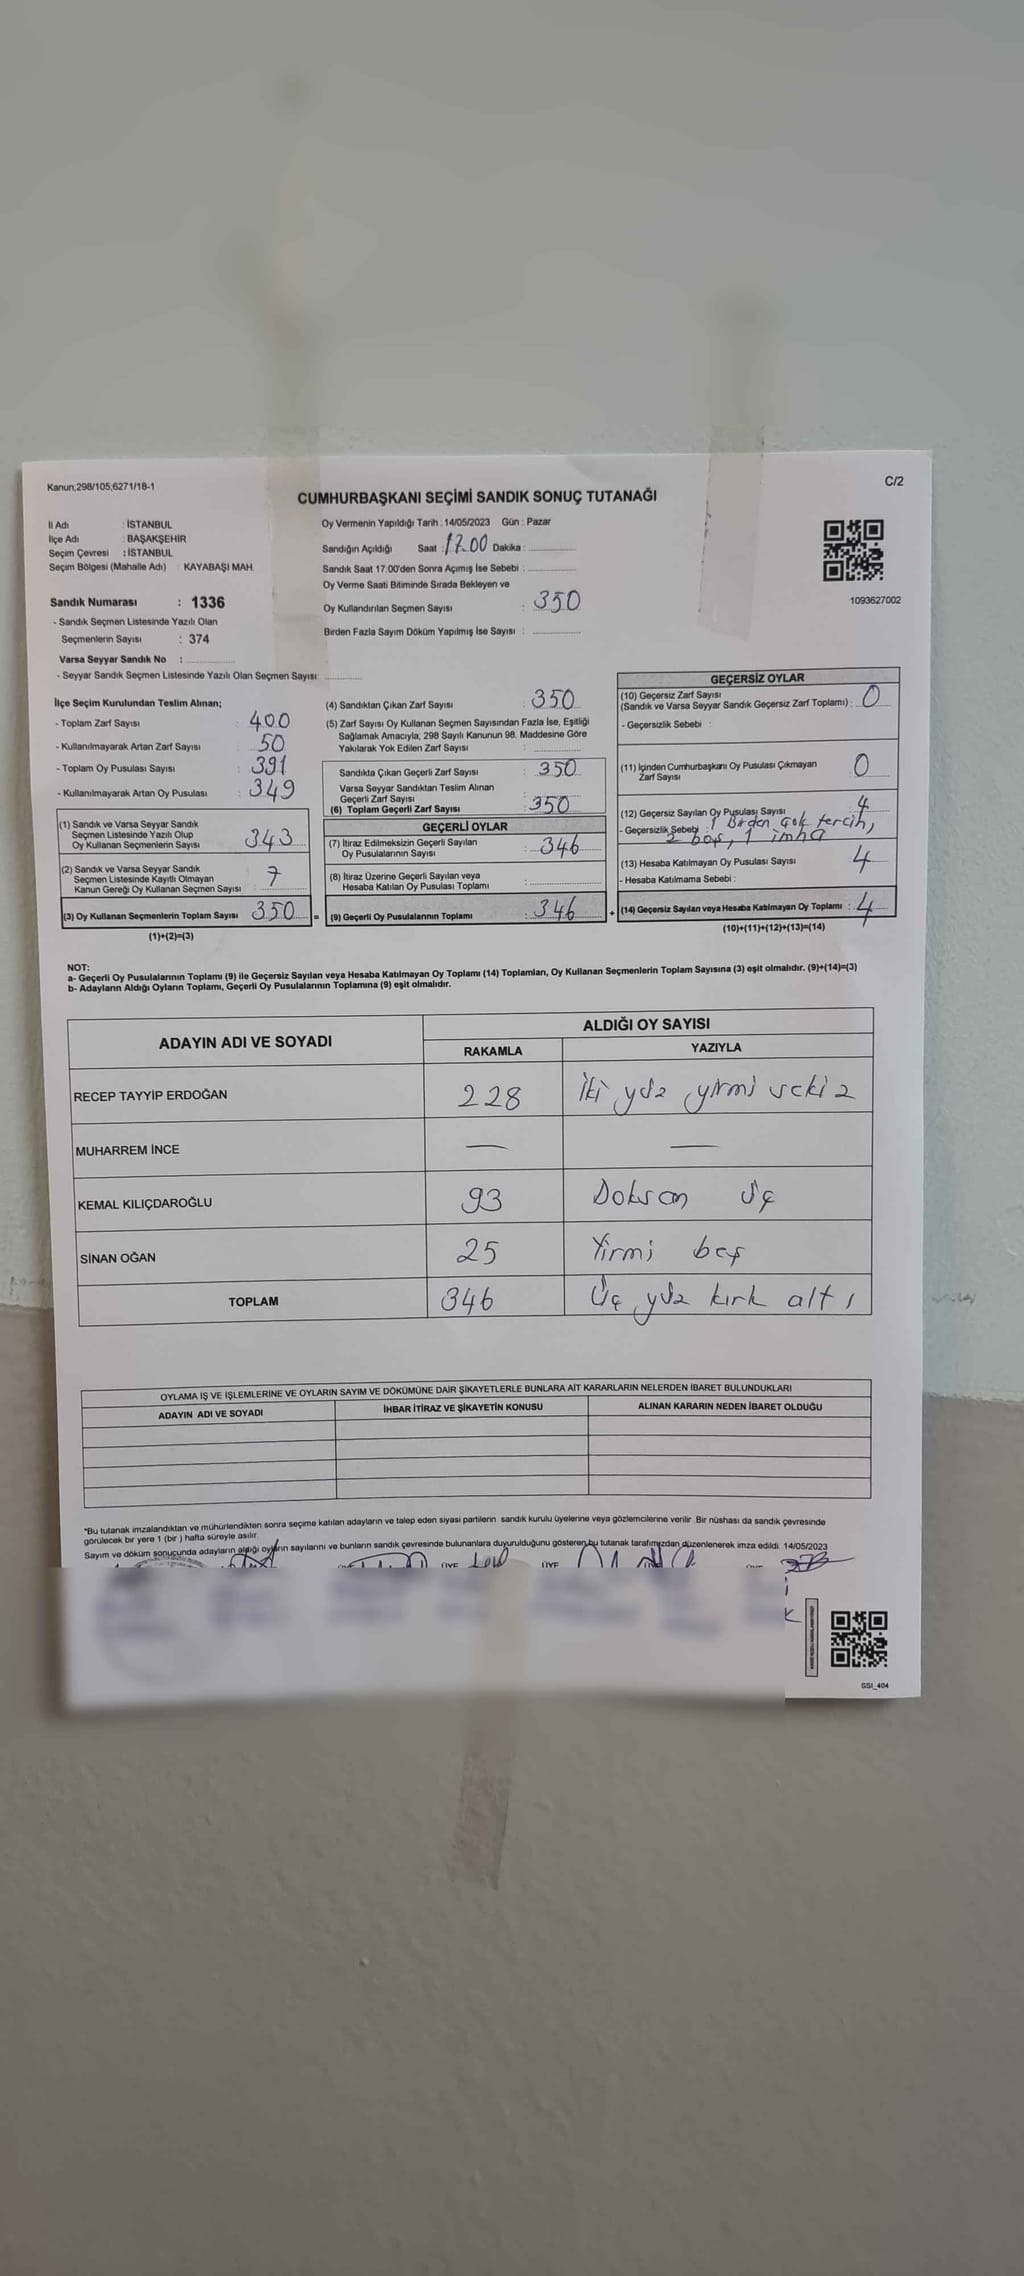 Kanun;298/105;6271/18-1
C/2
CUMHURBAŞKANI SEÇİMİ SANDIK SONUÇ TUTANAĞI
İl Adı : İSTANBUL
İlçe Adı : BAŞAKŞEHİR
Seçim Çevresi : İSTANBUL
Seçim Bölgesi (Mahalle Adı) : KAYABAŞI MAH.
Sandık Numarası : 1336
- Sandık Seçmen Listesinde Yazılı Olan
Seçmenlerin Sayısı : 374
Varsa Seyyar Sandık No :
- Seyyar Sandık Seçmen Listesinde Yazılı Olan Seçmen Sayısı:
Oy Vermenin Yapıldığı Tarih : 14/05/2023 Gün : Pazar
Sandığın Açıldığı Saat : 17.00 Dakika :
Sandık Saat 17:00'den Sonra Açımış İse Sebebi :
Oy Verme Saati Bitiminde Sırada Bekleyen ve
Oy Kullandırılan Seçmen Sayısı : 350
Birden Fazla Sayım Döküm Yapılmış İse Sayısı :
1093627002
İlçe Seçim Kurulundan Teslim Alınan;
- Toplam Zarf Sayısı : 400
- Kullanılmayarak Artan Zarf Sayısı : 50
- Toplam Oy Pusulası Sayısı : 391
- Kullanılmayarak Artan Oy Pusulası : 349
(1) Sandık ve Varsa Seyyar Sandık
Seçmen Listesinde Yazılı Olup
Oy Kullanan Seçmenlerin Sayısı : 343
(2) Sandık ve Varsa Seyyar Sandık
Seçmen Listesinde Kayıtlı Olmayan
Kanun Gereği Oy Kullanan Seçmen Sayısı : 7
(3) Oy Kullanan Seçmenlerin Toplam Sayısı : 350 =
(1)+(2)=(3)
(4) Sandıktan Çıkan Zarf Sayısı : 350
(5) Zarf Sayısı Oy Kullanan Seçmen Sayısından Fazla İse, Eşitliği
Sağlamak Amacıyla, 298 Sayılı Kanunun 98. Maddesine Göre
Yakılarak Yok Edilen Zarf Sayısı :
Sandıkta Çıkan Geçerli Zarf Sayısı : 350
Varsa Seyyar Sandıktan Teslim Alınan
Geçerli Zarf Sayısı :
(6) Toplam Geçerli Zarf Sayısı : 350
GEÇERLİ OYLAR
(7) İtiraz Edilmeksizin Geçerli Sayılan
Oy Pusulalarının Sayısı : 346
(8) İtiraz Üzerine Geçerli Sayılan veya
Hesaba Katılan Oy Pusulası Toplamı :
(9) Geçerli Oy Pusulalarının Toplamı : 346 +
GEÇERSİZ OYLAR
(10) Geçersiz Zarf Sayısı
(Sandık ve Varsa Seyyar Sandık Geçersiz Zarf Toplamı) : 0
- Geçersizlik Sebebi :
(11) İçinden Cumhurbaşkanı Oy Pusulası Çıkmayan
Zarf Sayısı : 0
(12) Geçersiz Sayılan Oy Pusulası Sayısı : 4
- Geçersizlik Sebebi : 1 Birden çok tercih,
2 boş, 1 imha
(13) Hesaba Katılmayan Oy Pusulası Sayısı : 4
- Hesaba Katılmama Sebebi :
(14) Geçersiz Sayılan veya Hesaba Katılmayan Oy Toplamı : 4
(10)+(11)+(12)+(13)=(14)
NOT:
a- Geçerli Oy Pusulalarının Toplamı (9) ile Geçersiz Sayılan veya Hesaba Katılmayan Oy Toplamı (14) Toplamları, Oy Kullanan Seçmenlerin Toplam Sayısına (3) eşit olmalıdır. (9)+(14)=(3)
b- Adayların Aldığı Oyların Toplamı, Geçerli Oy Pusulalarının Toplamına (9) eşit olmalıdır.
ADAYIN ADI VE SOYADI
ALDIĞI OY SAYISI
RAKAMLA YAZIYLA
RECEP TAYYİP ERDOĞAN 228 İki yüz yirmi sekiz
MUHARREM İNCE — —
KEMAL KILIÇDAROĞLU 93 Doksan üç
SİNAN OĞAN 25 Yirmi beş
TOPLAM 346 Üç yüz kırk altı
OYLAMA İŞ VE İŞLEMLERİNE VE OYLARIN SAYIM VE DÖKÜMÜNE DAİR ŞİKAYETLERLE BUNLARA AİT KARARLARIN NELERDEN İBARET BULUNDUKLARI
ADAYIN ADI VE SOYADI İHBAR İTİRAZ VE ŞİKAYETİN KONUSU ALINAN KARARIN NEDEN İBARET OLDUĞU
*Bu tutanak imzalandıktan ve mühürlendikten sonra seçime katılan adayların ve talep eden siyasi partilerin sandık kurulu üyelerine veya gözlemcilerine verilir. Bir nüshası da sandık çevresinde
görülecek bir yere 1 (bir ) hafta süreyle asılır.
Sayım ve döküm sonucunda adayların aldığı oyların sayılarını ve bunların sandık çevresinde bulunanlara duyurulduğunu gösteren bu tutanak tarafımızdan düzenlenerek imza edildi. 14/05/2023
ÜYE ÜYE
SSI_404